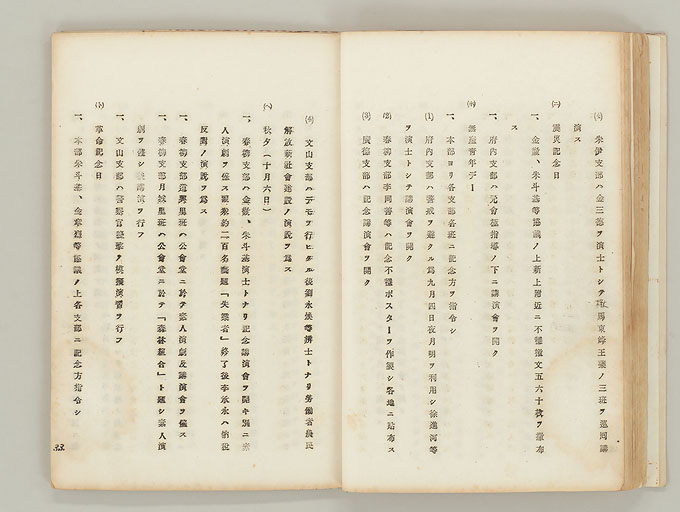 (4) 朱伊支部ハ金三德ヲ演士トシテ 馬東 王藥ノ三班ヲ巡囘講
演ス
(二) 震災記念日
一、金 、朱斗基等協議ノ上新上附近ニ不穩檄文五六十枚ヲ撒布
ス
一、府內支部ハ元會極指導ノ下ニ講演會ヲ開ク
(ホ) 無產靑年デー
一、本部ヨリ各支部各班ニ記念方ヲ指令シ
(1) 府內支部ハ警戒ヲ避クル爲九月四日夜月明ヲ利用シ徐進河等
ヲ演士トシテ講演會ヲ開ク
(2) 春柳支部李同善等ハ記念不穩ポスターヲ作製シ各地ニ貼布ス
(3) 廣德支部ハ記念講演會ヲ開ク
(4) 文山支部ハデモヲ行ヒタル後劉永 等辯士トナリ勞働者農民
解放新社會建設ノ演説ヲ爲ス
(ヘ) 秋夕(十月六日)
一、春柳支部ハ金 、朱斗基演士トナリ記念講演會ヲ開キ別ニ素
人演劇ヲ催ス觀衆約二百名藝題「失業者」終了後李承永ハ 
反對ノ演説ヲ爲ス
一、春柳支部道興里班ハ公會堂ニ於テ素人演劇及講演會ヲ催ス
一、春柳支部月 里班ハ公會堂ニ於テ「森林組合」ト題シ素人演
劇ヲ催シ 講演ヲ行フ
一、文山支部ハ警察官襲擊ノ模擬演習ヲ行フ
(ト) 革命記念日
一、本部朱斗基、金章 等協議ノ上各支部ニ記念方指令シ